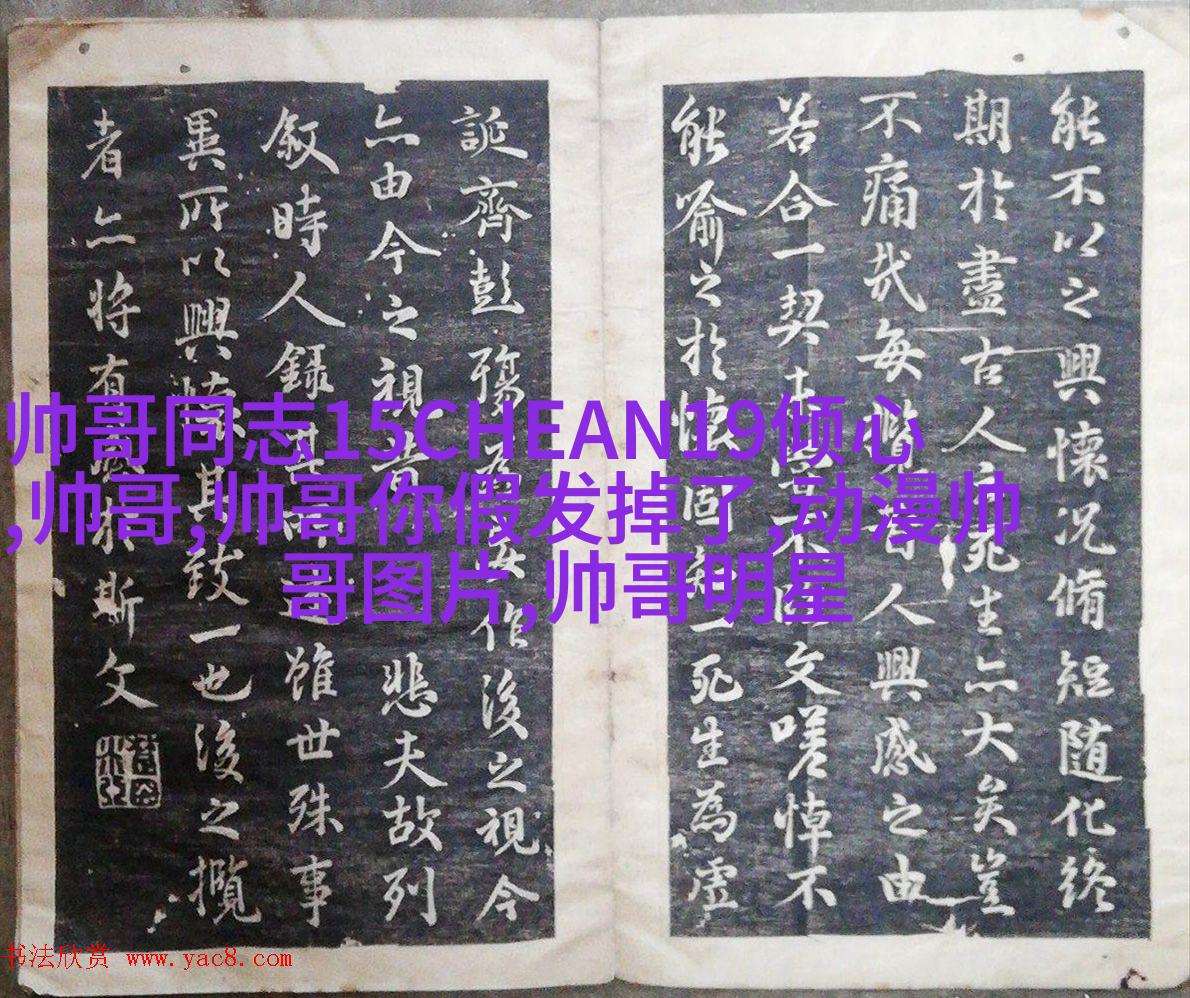 能不以之興懷況脩短随化終
期於盡古人云死生亦大矣豈
不痛哉每昔人興感之由
若合一契不文嗟悼不
能喻之於懷固知一死生為虛
誕齊彭殤為妄作後之視今
亦由今之視昔悲夫故列
叙時人錄其雖世殊事
異所以興懷其致一也後之攬
者亦将有於斯文
帅哥同志15CHEAN19倾心
,帅哥,帅哥你假发掉了,动漫帅
哥图片,帅哥明星
书法欣赏 www.yac8.com